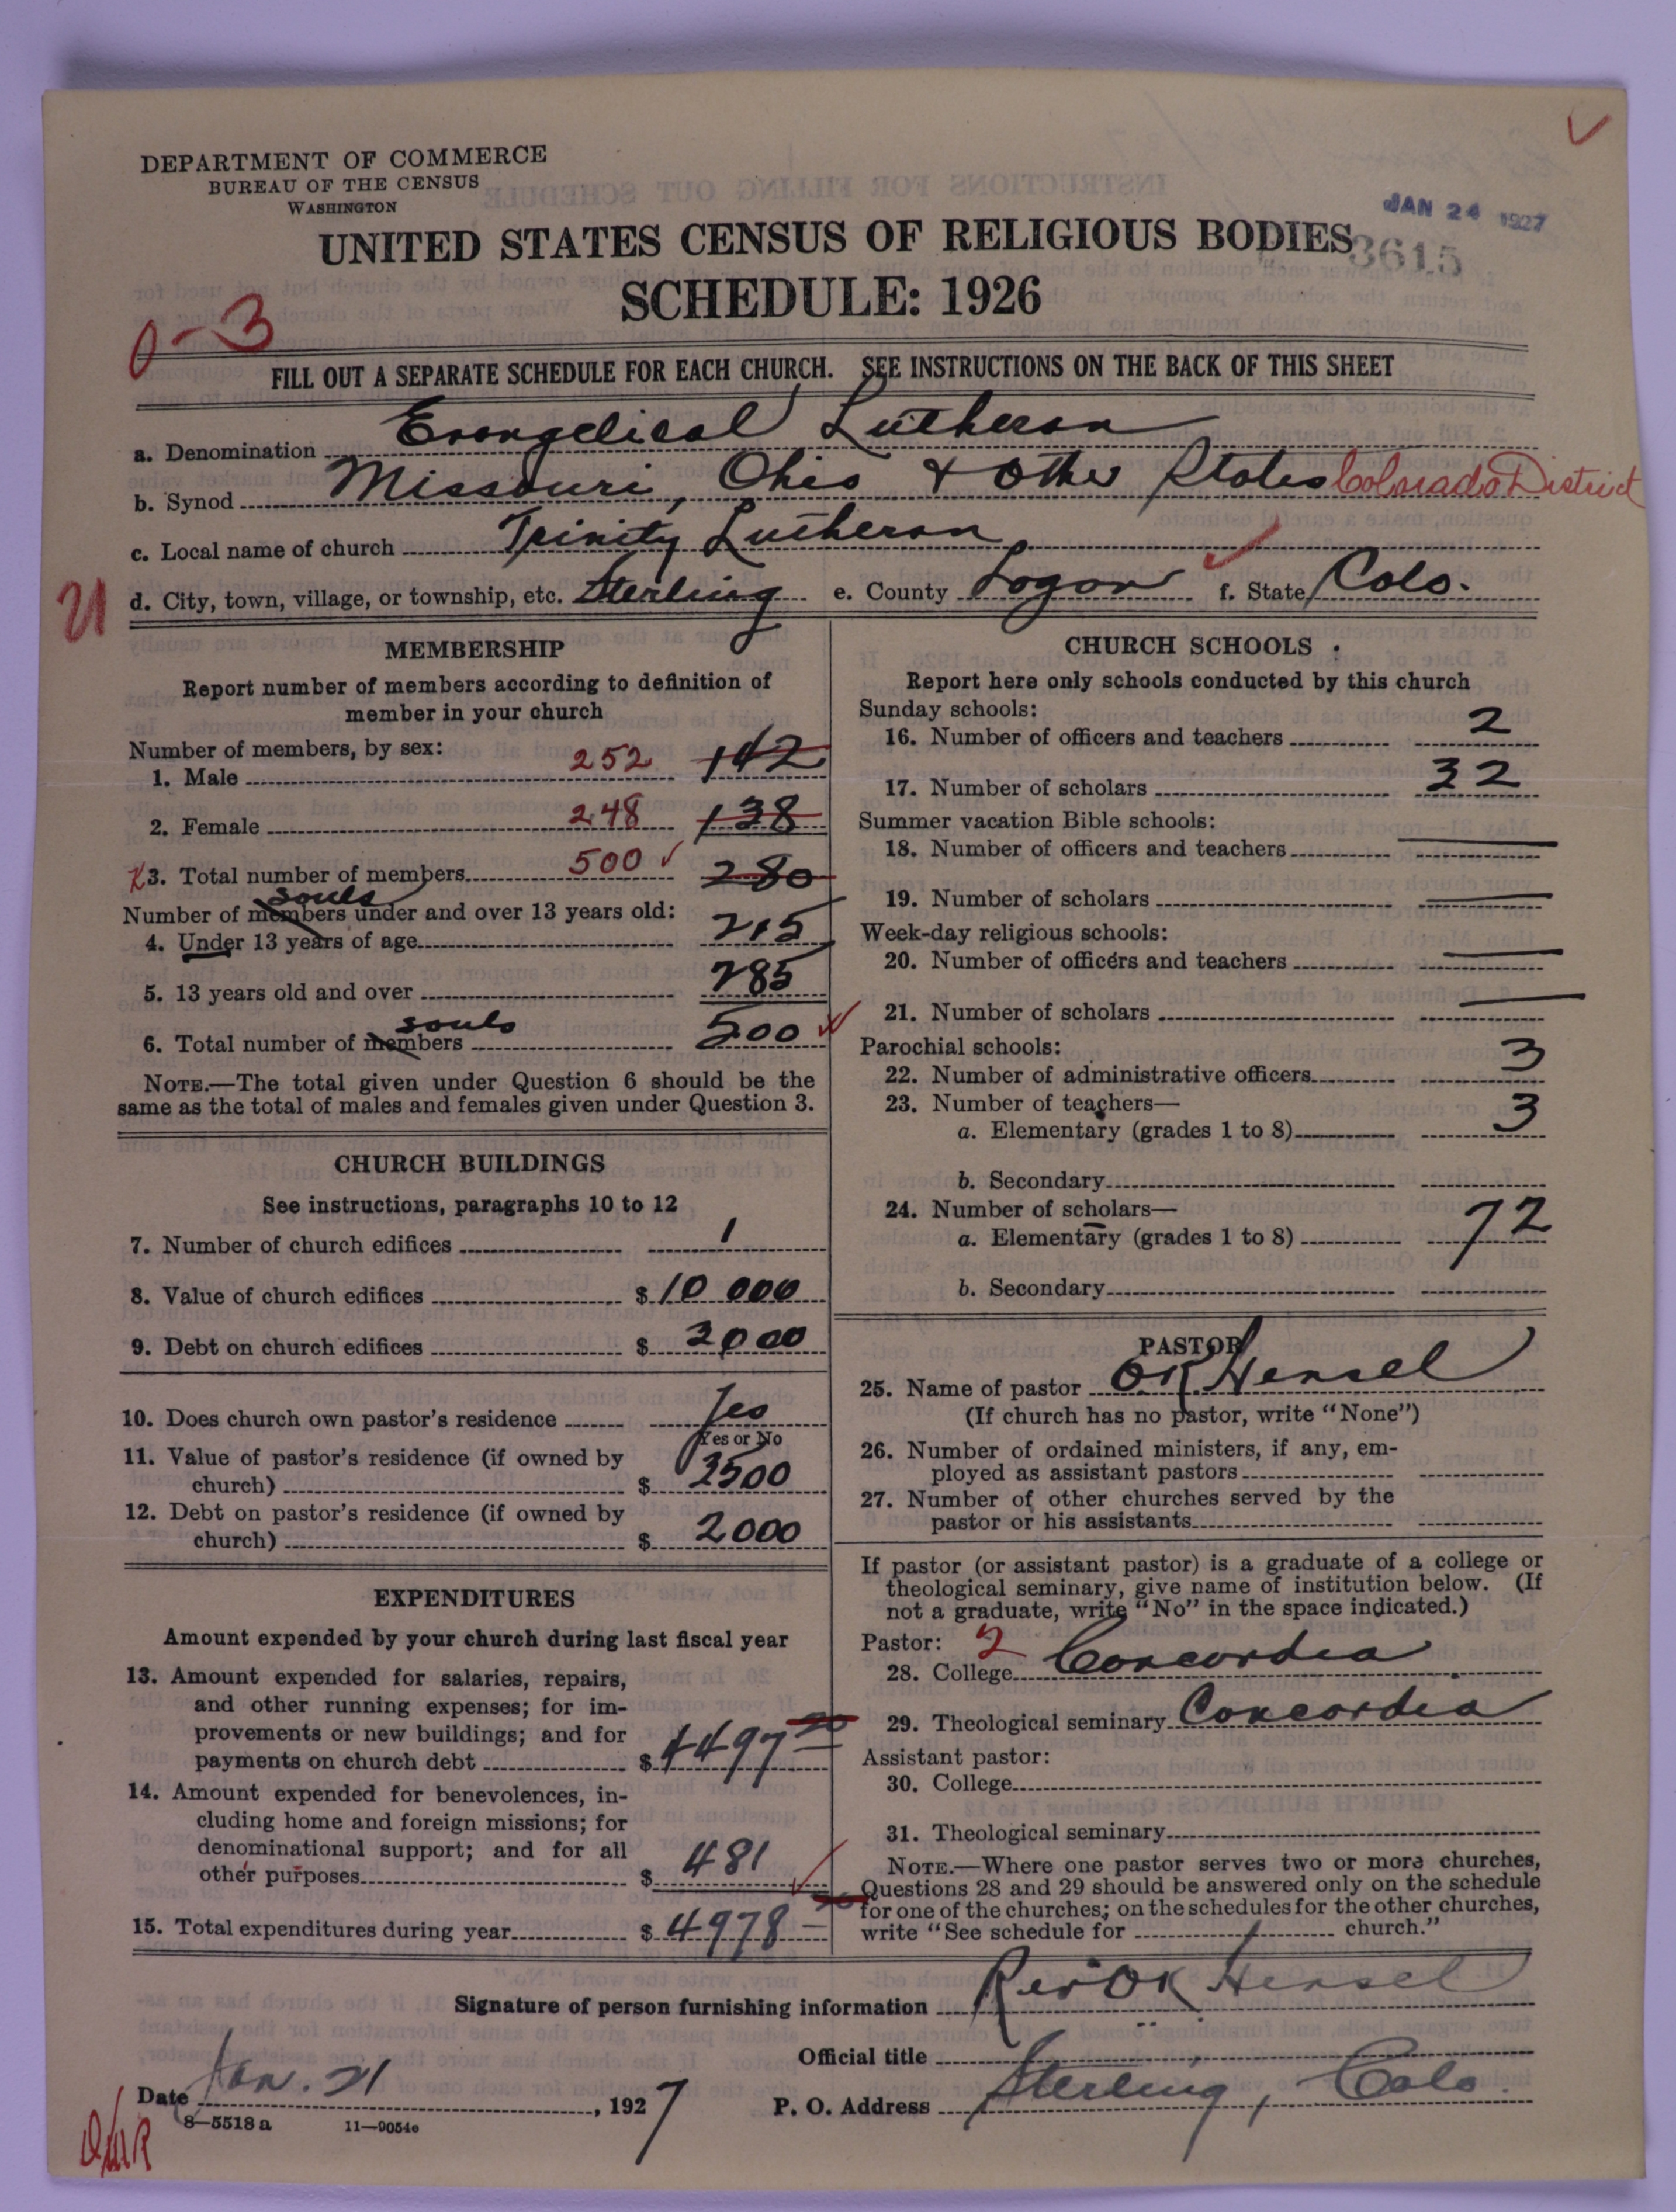 DEPARTMENT OF COMMERCE
BUREAU OF THE CENSUS
WASHINGTON
JAN 24 1927
UNITED STATES CENSUS OF RELIGIOUS BODIES
3615
SCHEDULE: 1926
0-3
FILL OUT A SEPARATE SCHEDULE FOR EACH CHURCH. SEE INSTRUCTIONS ON THE BACK OF THIS SHEET
a. Denomination Evangelical Lutheran
b. Synod Missouri, Ohio & Other States Colorado District
c. Local name of church Trinity Lutheran
d. City, town, village, or township, etc. Sterling e. County Logan f. State Colo.
MEMBERSHIP
Report number of members according to definition of
member in your church
Number of members, by sex:
1. Male 252 142
2. Female 248 138
3. Total number of members 500 280
souls
Number of members under and over 13 years old:
4. Under 13 years of age 215
5. 13 years old and over 285
souls
6. Total number of members 500
NOTE.—The total given under Question 6 should be the
same as the total of males and females given under Question 3.
CHURCH BUILDINGS
See instructions, paragraphs 10 to 12
7. Number of church edifices 1
8. Value of church edifices $ 10 000
9. Debt on church edifices $ 2000
10. Does church own pastor's residence Yes
Yes or No
11. Value of pastor's residence (if owned by
church) $ 3500
12. Debt on pastor's residence (if owned by
church) $ 2000
EXPENDITURES
Amount expended by your church during last fiscal year
13. Amount expended for salaries, repairs,
and other running expenses; for im-
provements or new buildings; and for
payments on church debt $ 4497
14. Amount expended for benevolences, in-
cluding home and foreign missions; for
denominational support; and for all
other purposes $ 481
15. Total expenditures during year $ 4978
CHURCH SCHOOLS
Report here only schools conducted by this church
Sunday schools:
16. Number of officers and teachers 2
17. Number of scholars 32
Summer vacation Bible schools:
18. Number of officers and teachers —
19. Number of scholars —
Week-day religious schools:
20. Number of officers and teachers —
21. Number of scholars —
Parochial schools:
22. Number of administrative officers 3
23. Number of teachers—
a. Elementary (grades 1 to 8) 3
b. Secondary
24. Number of scholars—
a. Elementary (grades 1 to 8) 72
b. Secondary
PASTOR
25. Name of pastor OK Hensel
(If church has no pastor, write "None")
26. Number of ordained ministers, if any, em-
ployed as assistant pastors
27. Number of other churches served by the
pastor or his assistants
If pastor (or assistant pastor) is a graduate of a college or
theological seminary, give name of institution below. (If
not a graduate, write "No" in the space indicated.)
Pastor: 2
28. College Concordia
29. Theological seminary Concordia
Assistant pastor:
30. College
31. Theological seminary
NOTE.—Where one pastor serves two or more churches,
Questions 28 and 29 should be answered only on the schedule
for one of the churches; on the schedules for the other churches,
write "See schedule for church."
Signature of person furnishing information Rev OK Hensel
Official title
Date Jan. 21, 1927
P. O. Address Sterling, Colo.
8—5518 a 11—9054e